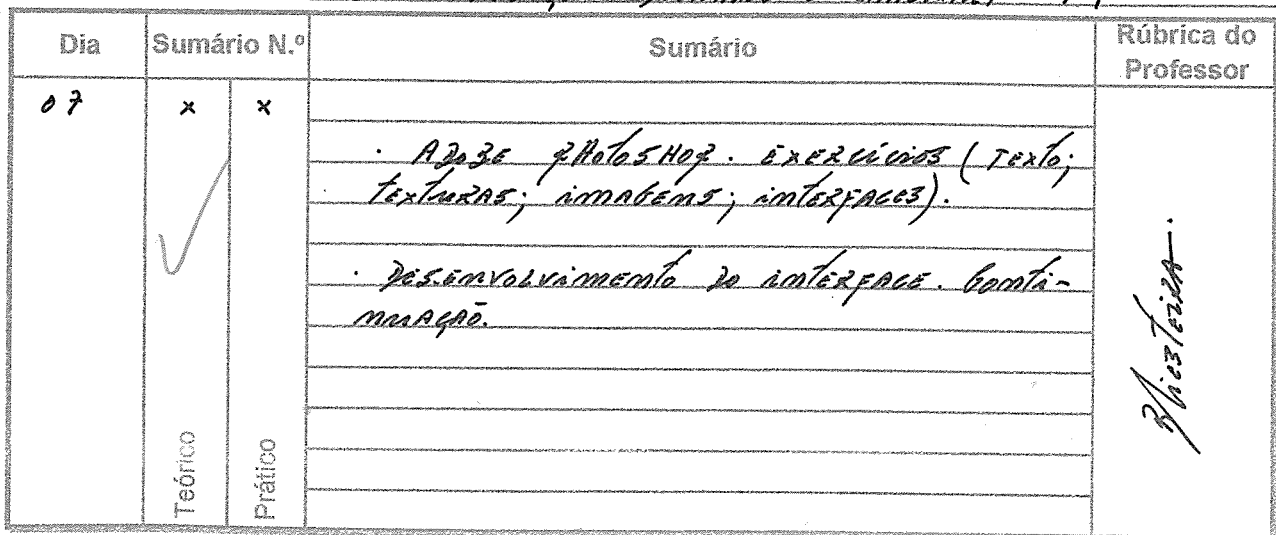 Dia
Sumário N.º
Sumário
Rúbrica do
Professor
07
x
x
· ADOBE PHOTOSHOP. EXERCÍCIOS (TEXTO;
TEXTURAS; IMAGENS; INTERFACES).
· DESENVOLVIMENTO DO INTERFACE. CONTI-
NUAÇÃO.
Teórico
Prático